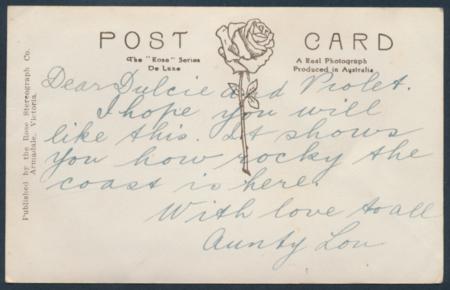 POST CARD
The "Rose" Series
De Luxe
A Real Photograph
Produced in Australia
Published by the Rose Stereograph Co.
Armadale, Victoria.
Dear Dulcie and Violet.
I hope you will
like this. It shows
you how rocky the
coast is here.
With love to all
Aunty Lou